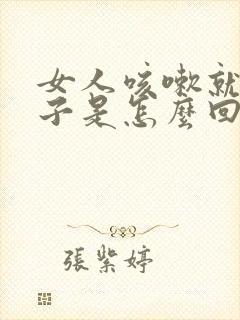 女人咳嗽就
子是怎麼回
張紫婷